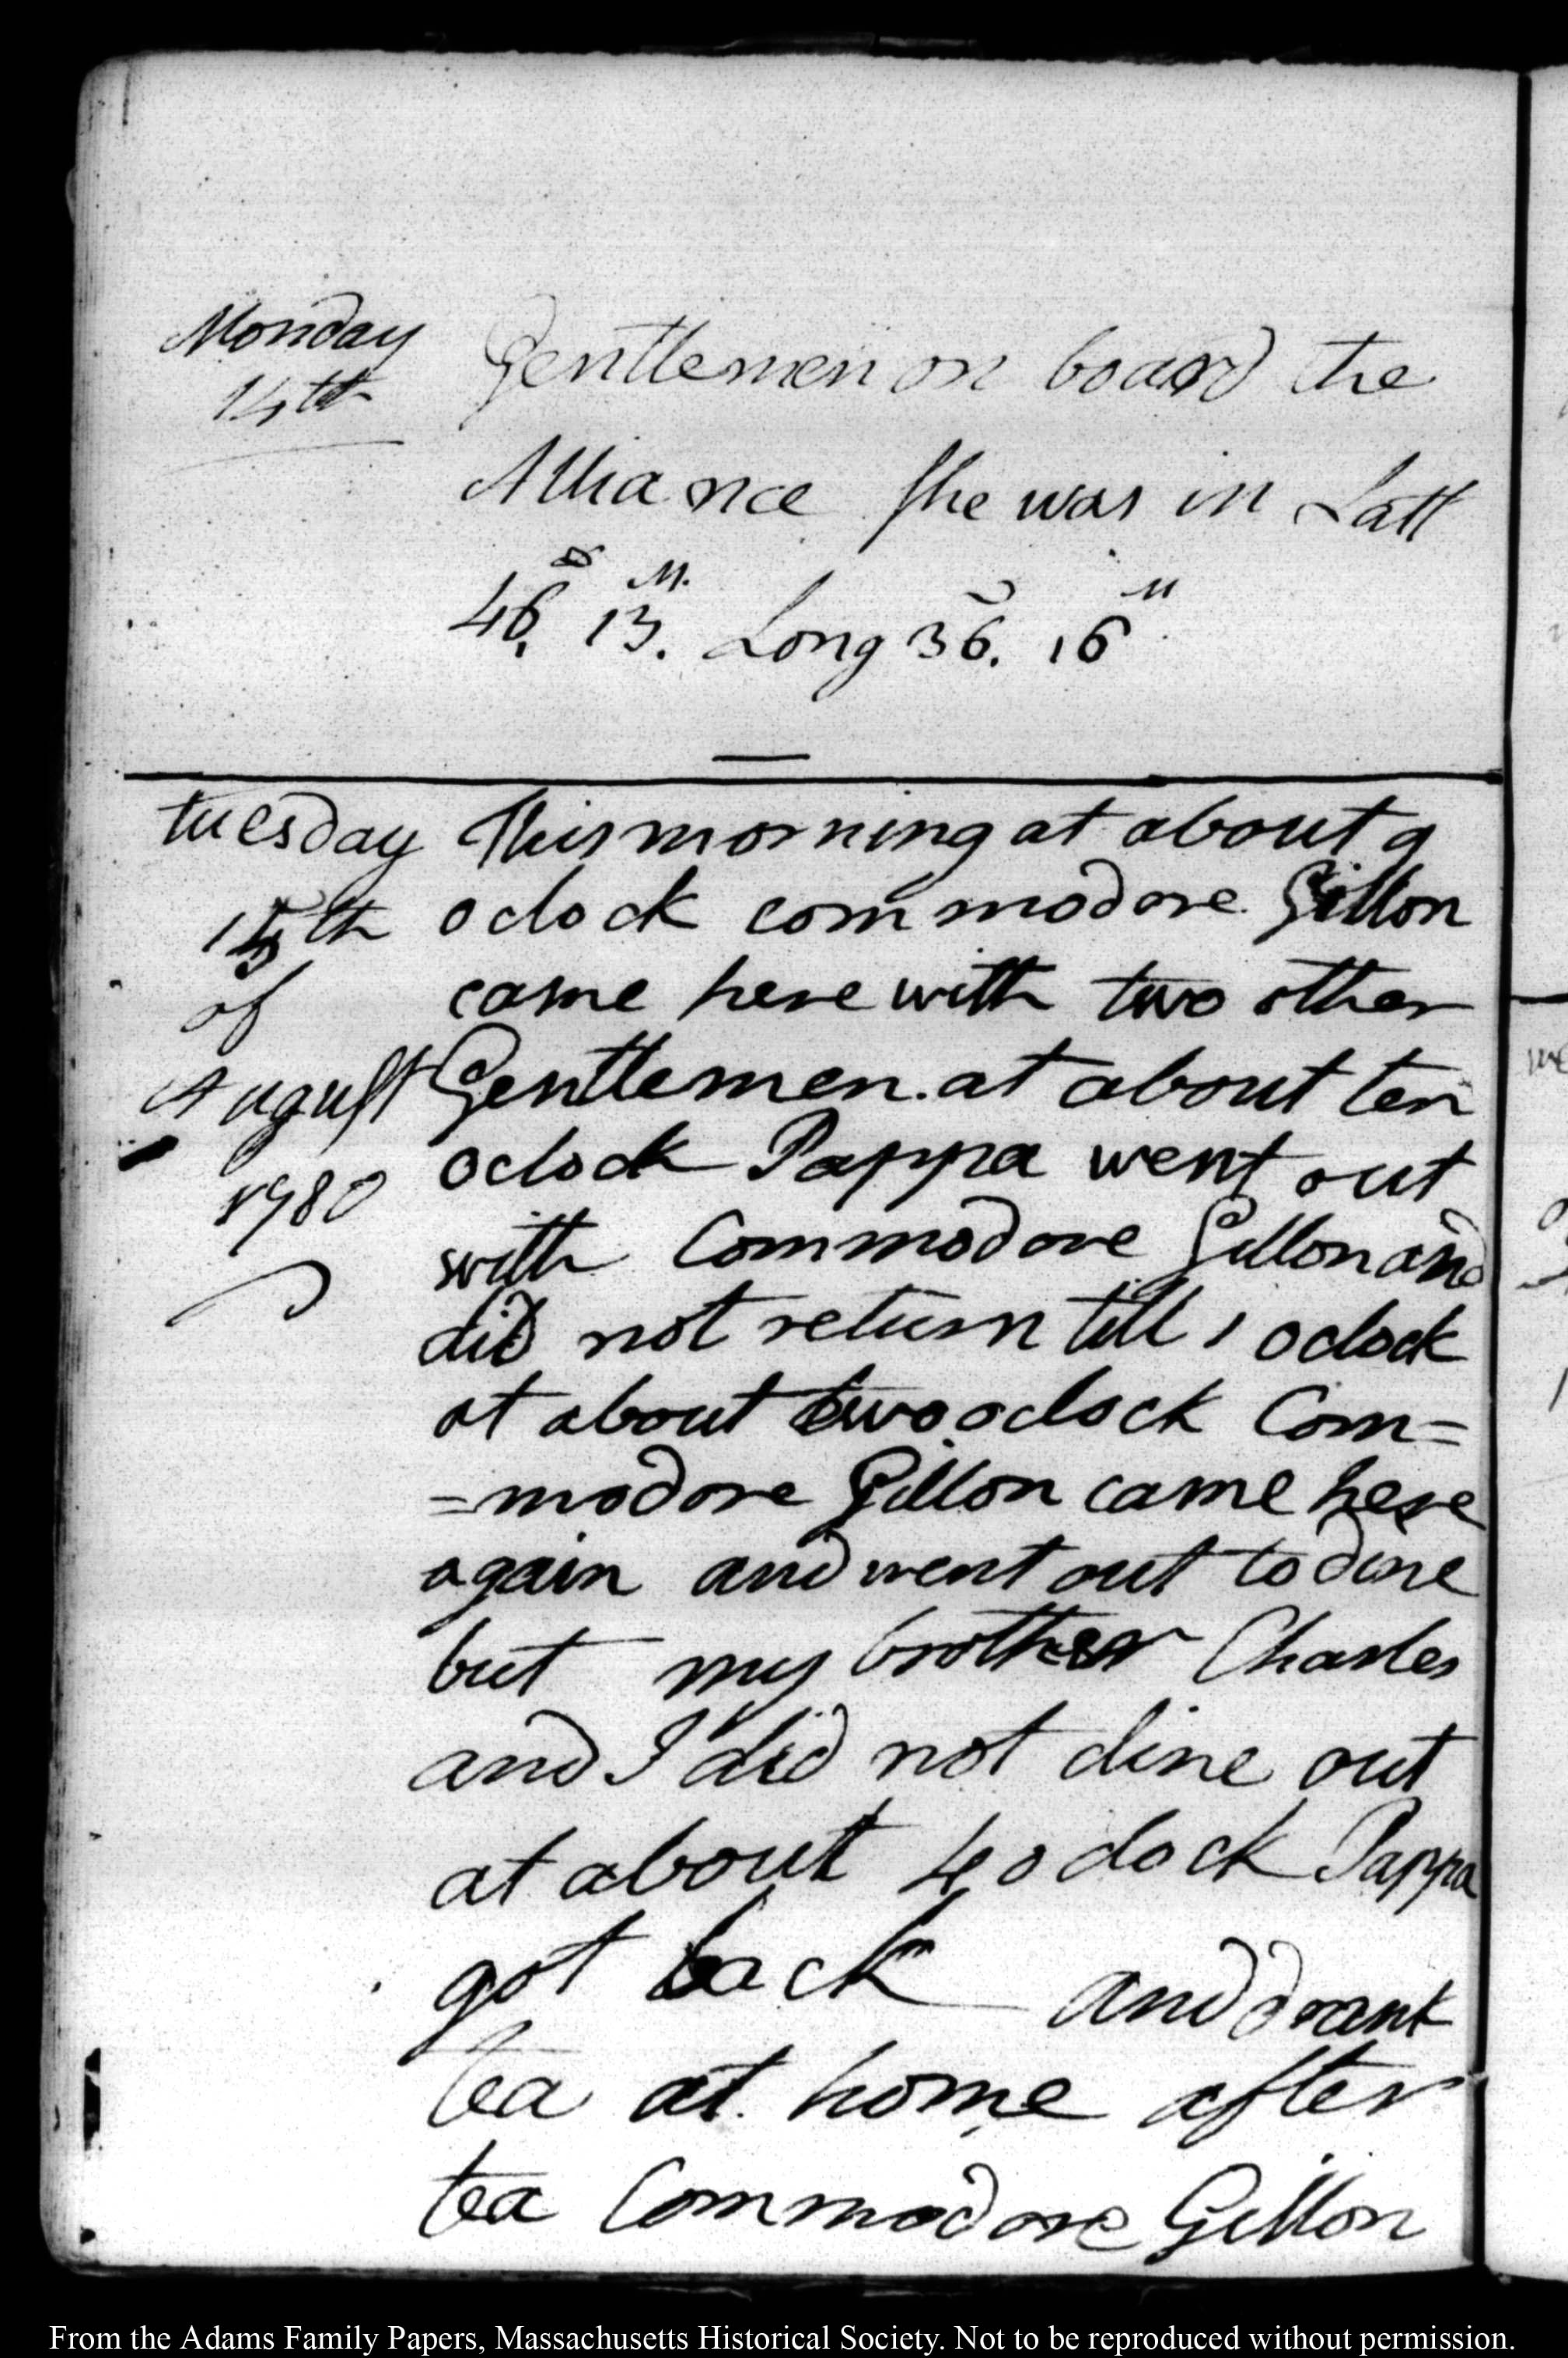 Monday
14th
Gentlemen on board the
Alliance she was in Latt
46.D 13.M. Long 36.D 16M
tuesday
15th
of
August
1780
This morning at about 9
o clock commodore Gillon
came here with two other
Gentlemen. at about ten
oclock Pappa went out
with Commodore Gillon and
did not return till 1 oclock
at about two oclock Com=
=modore Gillon came here
again and went out to dine
but my brother Charles
and I did not dine out
at about 4 o clock Pappa
got back and drank
tea at home after
tea Commodore Gillon
From the Adams Family Papers, Massachusetts Historical Society. Not to be reproduced without permission.